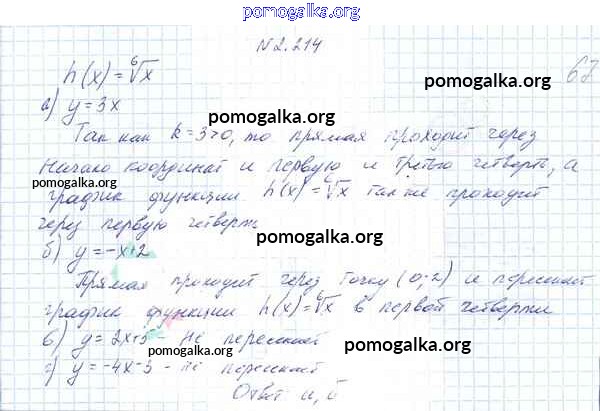 pomogalka.org
N 2.214
h(x) = ⁶√x
pomogalka.org
67
а) y = 3x
pomogalka.org
Так как k = 3>0, то прямая проходит через
начало координат и первую и третью четверть, а
pomogalka.org
график функции h(x) = ⁶√x также проходит
pomogalka.org
через первую четверть
pomogalka.org
б) y = -x+2
Прямая проходит через точку (0;2) и пересекает
график функции h(x) = ⁶√x в первой четверти
в) y = 2x+5 - не пересекает
pomogalka.org
pomogalka.org
г) y = -4x-3 - не пересекает
Ответ а, б